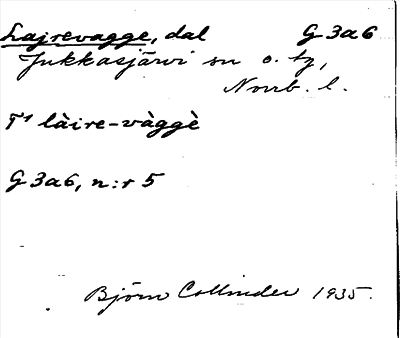 Lajrevagge, dal G 3a6
Jukkasjärvi sn o. tg,
Norrb. l.
T¹ làire-vàggè
G 3a6, n:r 5
Björn Collinder 1935.